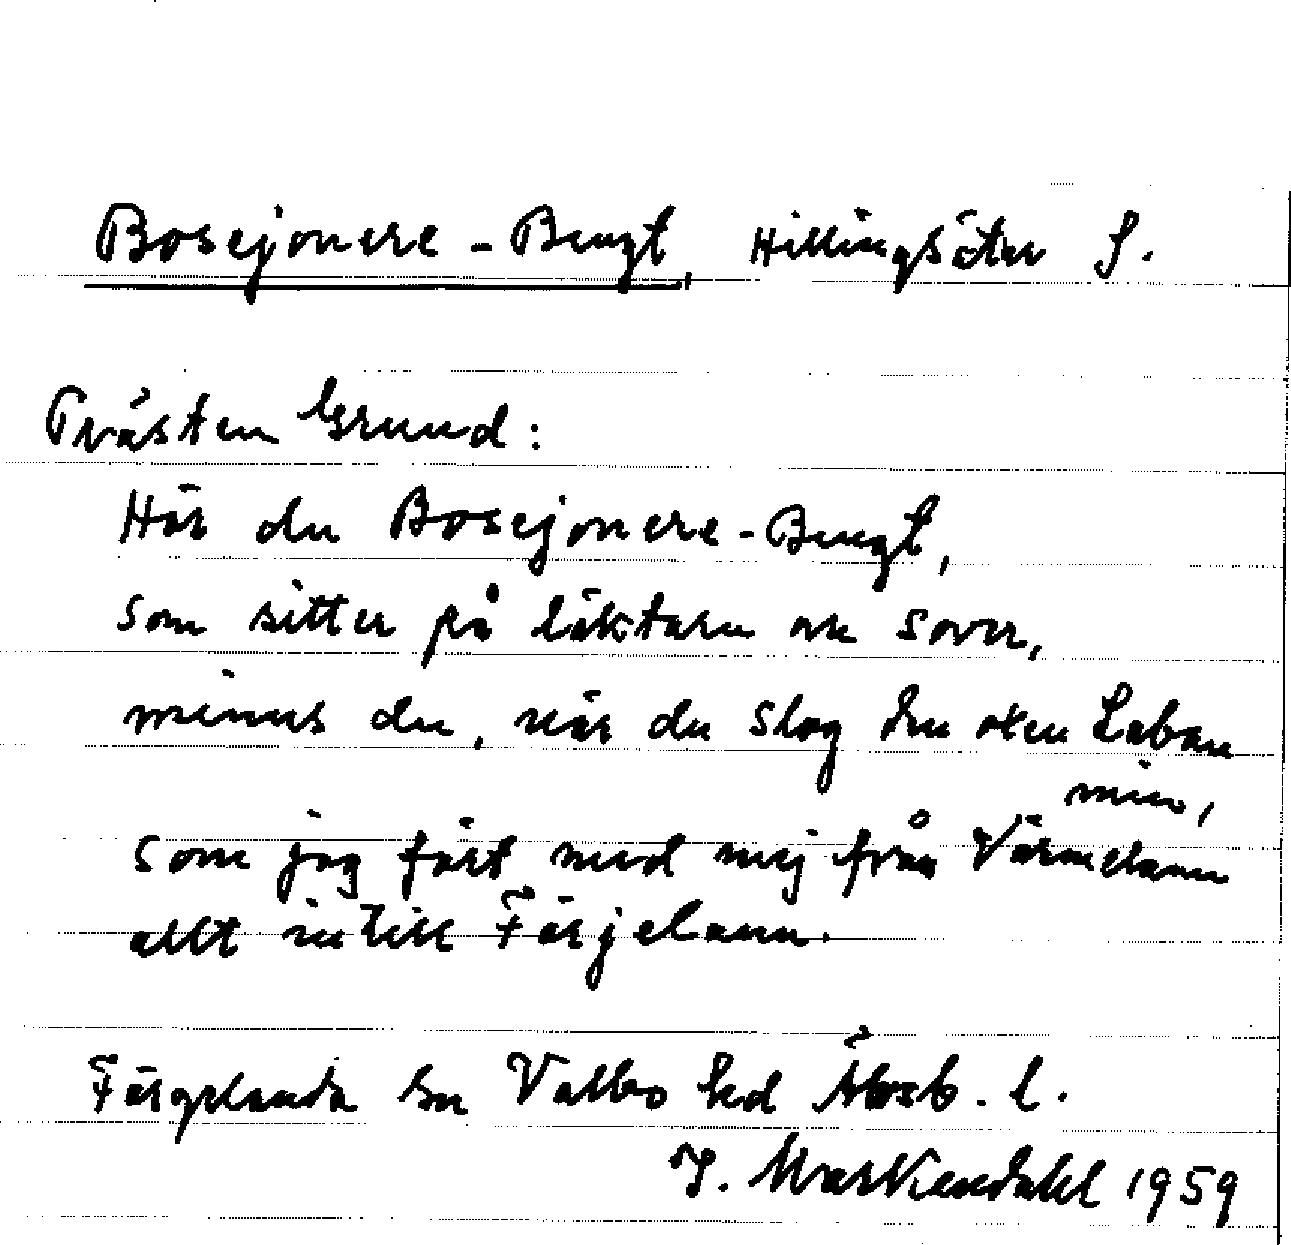 Bosejonere-Bengt, Hillingsäter S.
Prästen Grund:
Hör du Bosejonere-Bengt,
som sitter på läktaren och sover,
minns du, när du slog den oxen Laban
min,
som jag fört med mej från Värmelann
allt in till Färjelann.
Färgelanda sn Valbo hd Älvsb. l.
J. Markendahl 1959